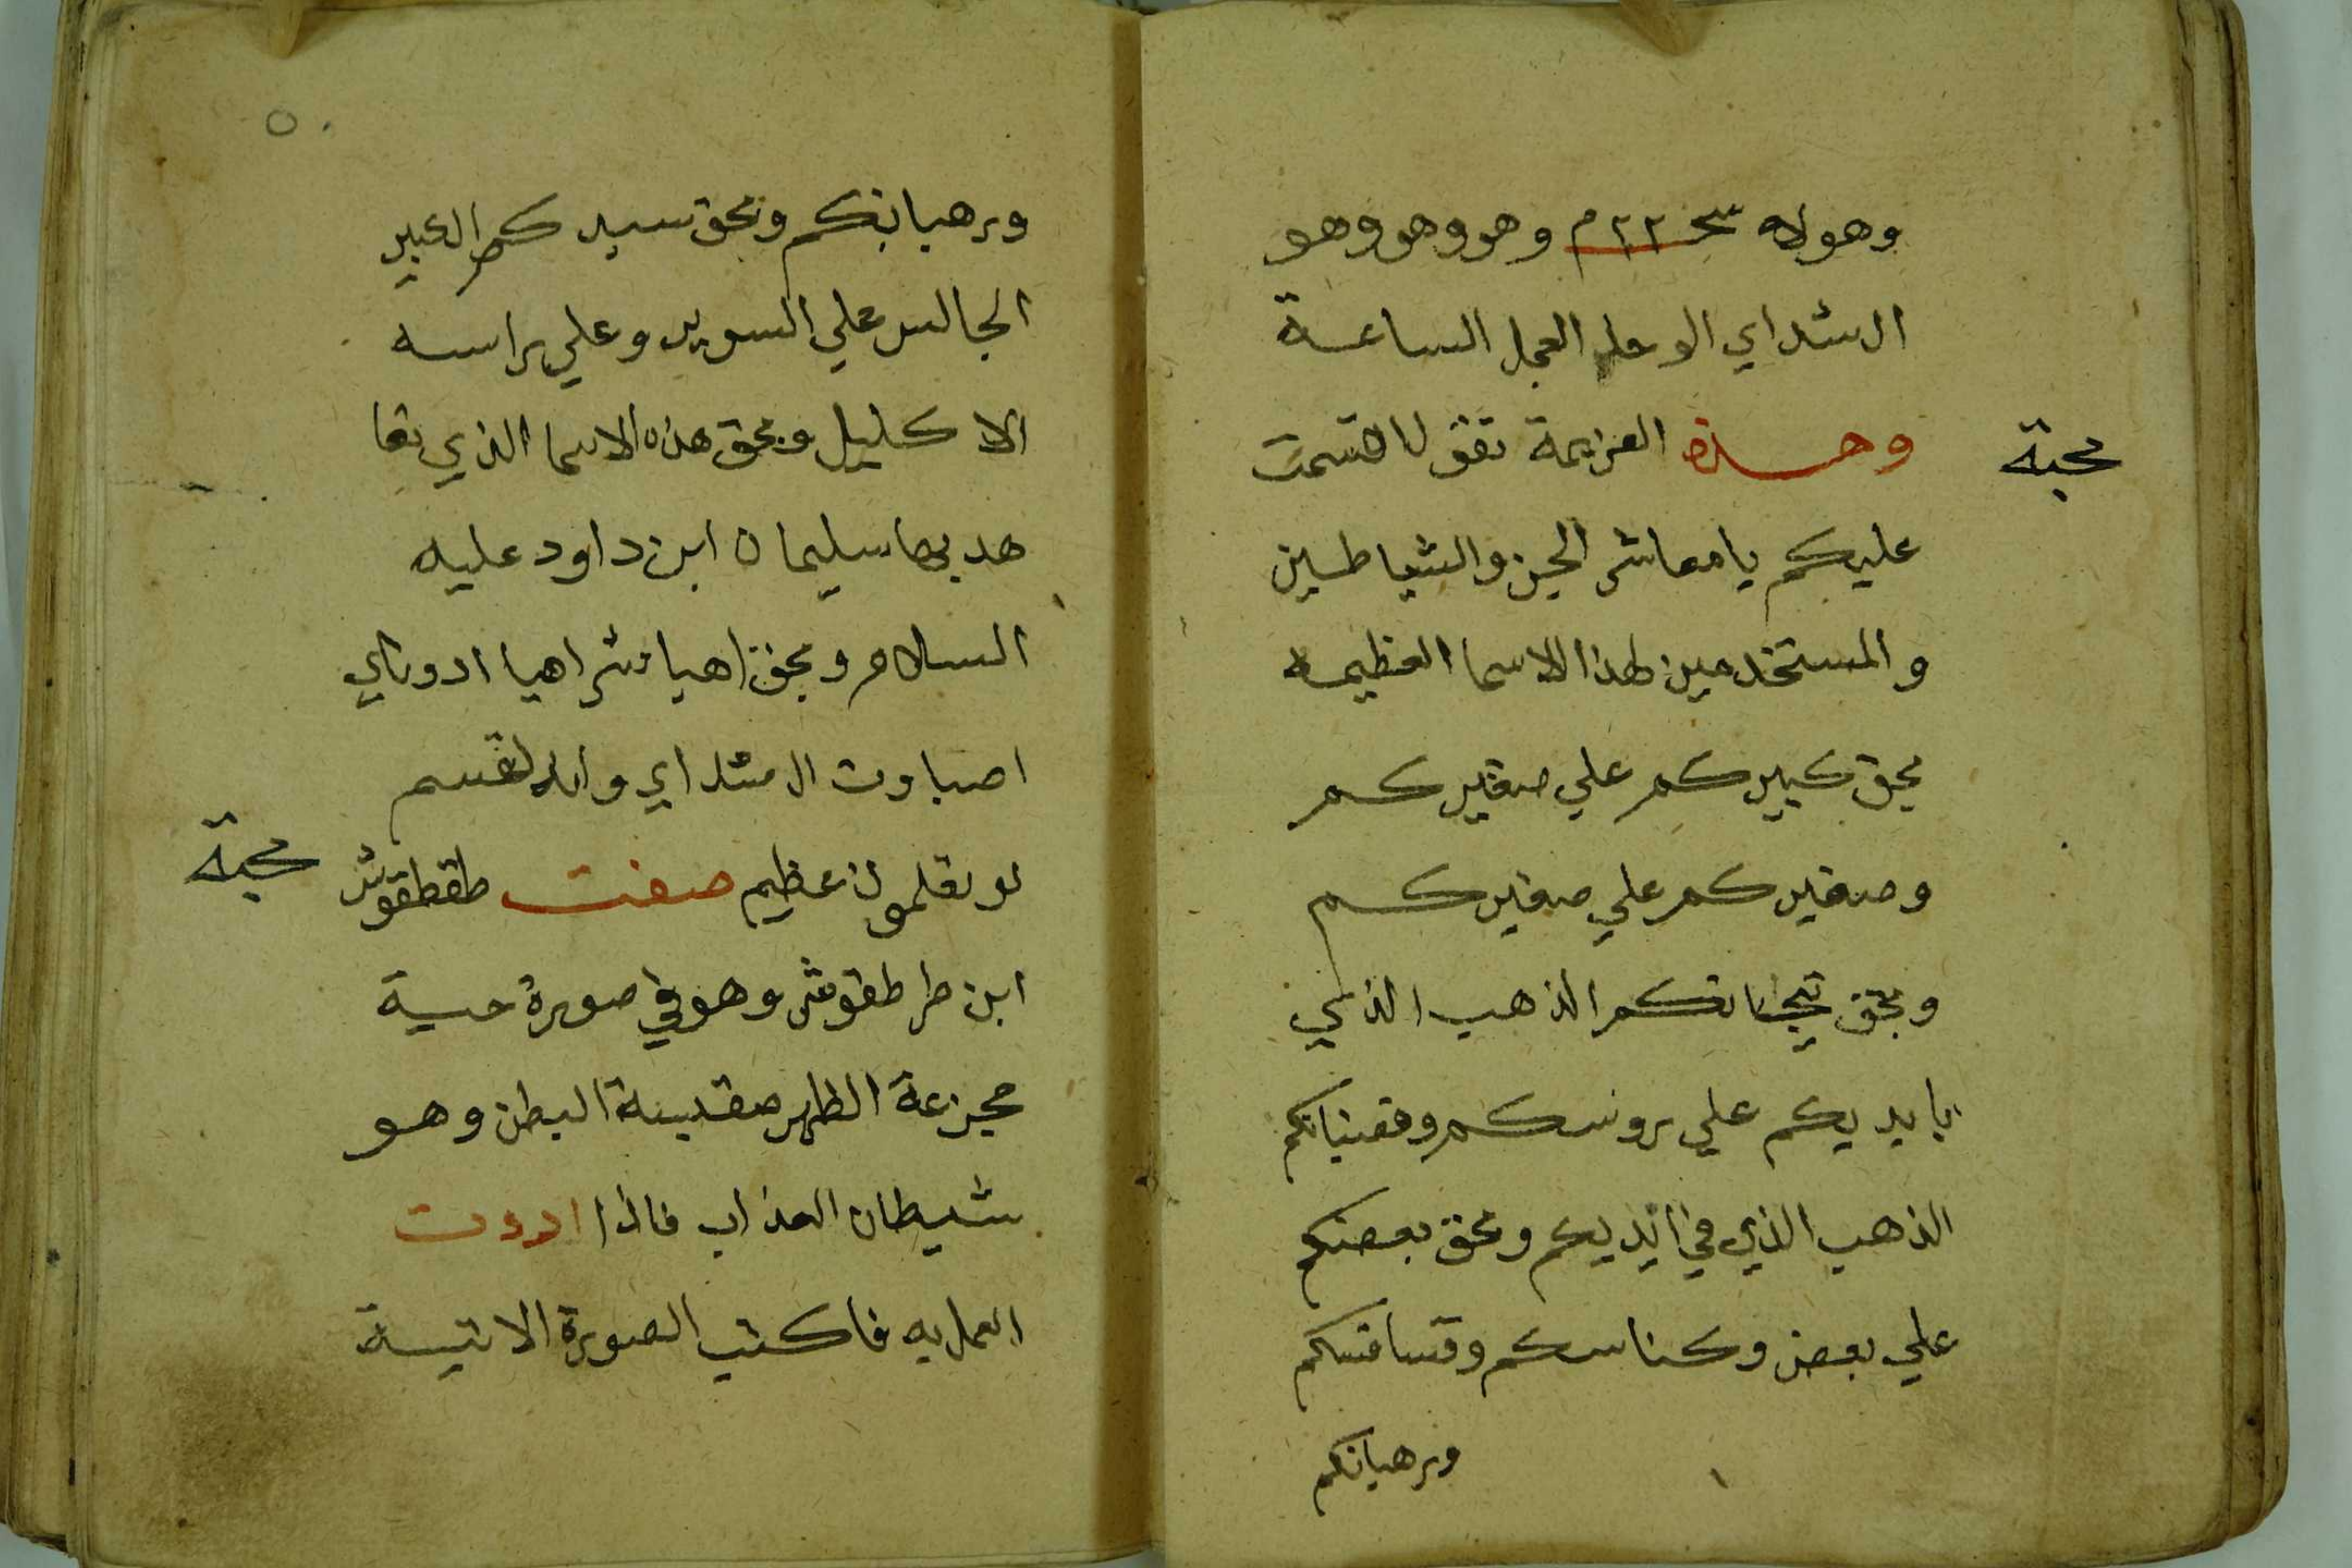 وهولاه سحـ ٢٢ م وهو وهو وهو
ال شداي الوحا العجل الساعة
محبة
وهذه العزيمة تقول اقسمت
عليكم يا معاشر الجن والشياطين
والمستخدمين لهذا الاسما العظيمه
بحق كبيركم علي صغيركم
وصغيركم علي صغيركم
وبحق تيجانكم الذهب الذي
بايديكم علي روسكم وقضبانكم
الذهب الذي في ايديكم وبحق بعضكم
علي بعض وكناسكم وقساقسكم
ورهبانكم
٥٠
ورهبانكم وبحق سيدكم الكبير
الجالس علي السرير وعلي راسه
الاكليل وبحق هذه الاسما الذي تعا
هد بها سليمان ابن داود عليه
السلام وبحق اهيا شراهيا ادوناي
اصباوت ال شداي وانه لقسم
لو تعلمون عظيم صفت طقطقوش
محبة
ابن طرطقوش وهو في صورة حية
مجزعة الظهر البطن وهو
شيطان العذاب فاذا اردت
العمل به فاكتب الصورة الاتية